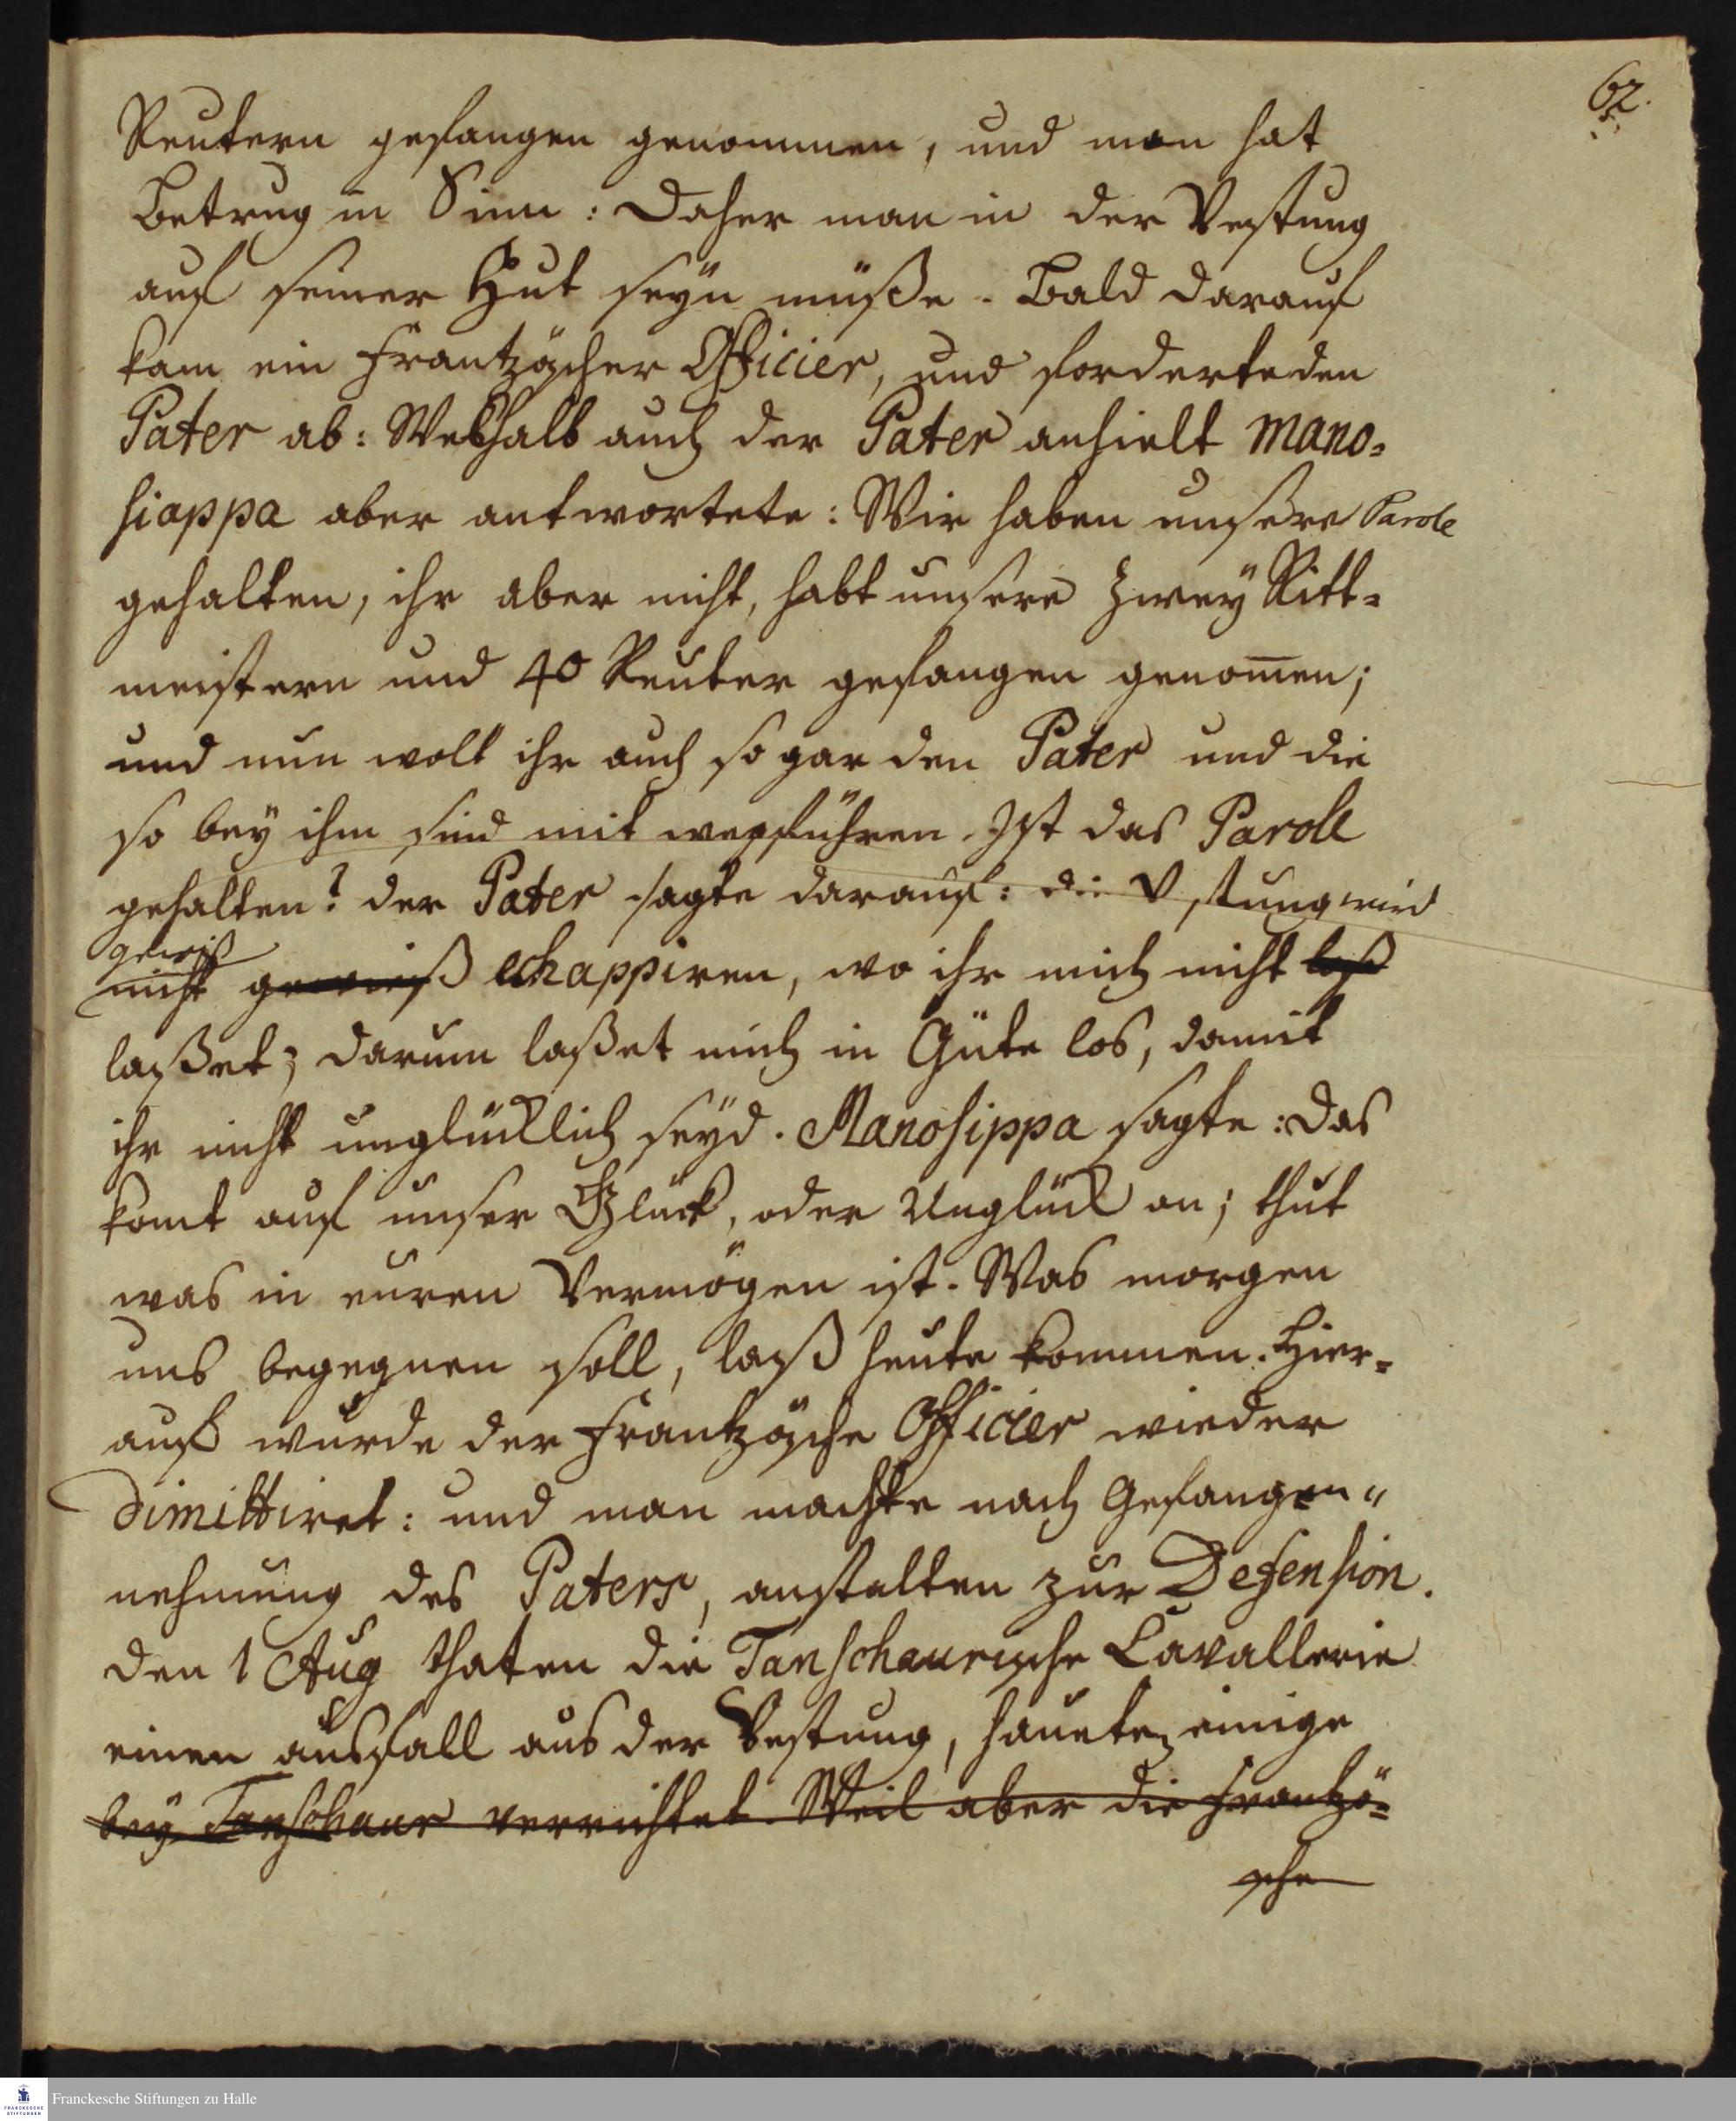 62.
Reutern gefangen genommen, und man hat
Betrug in Sinn: Daher man in der Vestung
auf seiner Hut seyn müße. Bald darauf
kam ein Frantzöscher Officier, und forderte den
Pater ab: Weßhalb auch der Pater anhielt Mano-
siappa aber antwortete: Wir haben unsere Parole
gehalten, ihr aber nicht, habt unsere zwey Ritt-
meistern und 40 Reuter gefangen genom̄en;
und nun wolt ihr auch so gar den Pater und die
so bey ihm sind mit wegführen. Ist das Parole
gehalten? der Pater sagte darauf: die Vstung wird
gewiß
nicht gewieß echappiren, wo ihr mich nicht loß
laßet; darum laßet mich in Güte los, damit
ihr nicht unglücklich seyd. Manosippa sagte: Das
komt auf unser Glück, oder Unglück an; thut
was in euren Vermögen ist. Was morgen
uns begegnen soll, laß heute kommen. Hier-
auf wurde der Frantzösche Officier wieder
dimittiret: und man machte nach Gefangen-
nehmung des Paters, anstalten zur Defension.
den 1 Aug thaten die Tanschaurische Cavallerie
einen ausfall aus der Vestung, haueten einige
bey Tanschaur verrichtet. Weil aber die Frantzö-
sche
Franckesche Stiftungen zu Halle